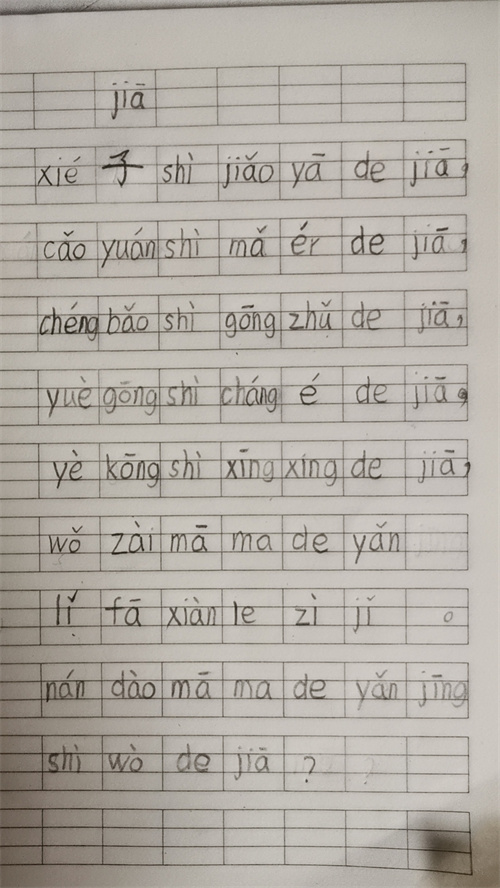 jiā
xié 子 shì jiǎo yā de jiā，
cǎo yuán shì mǎ ér de jiā，
chéng bǎo shì gōng zhǔ de jiā，
yuè gōng shì cháng é de jiā，
yè kōng shì xīng xíng de jiā，
wǒ zài mā ma de yǎn
lǐ fā xiàn le zì jǐ 。
nán dào mā ma de yǎn jīng
shì wò de jiā ?